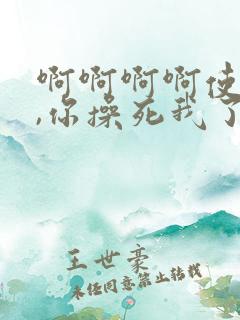 啊啊啊啊使
,你操死我了
王世豪
未经同意禁止转载